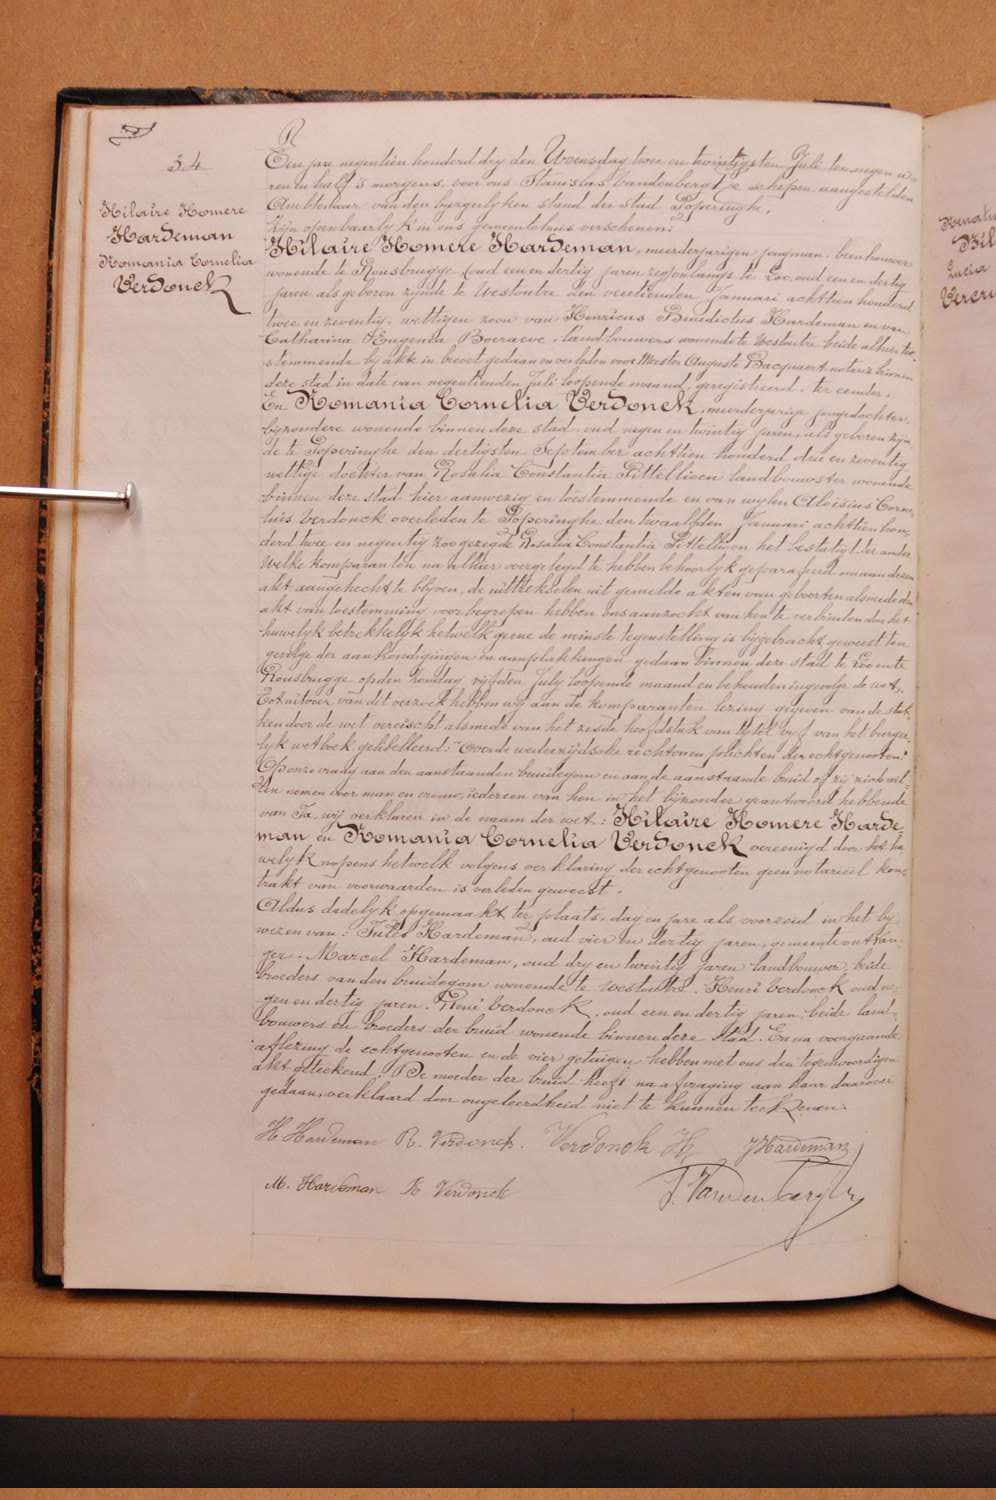 54
Hilaire Homere
Hardeman
Romania Cornelia
Verdonck
Een jare negentien honderd dry den Woensdag twee en twintigsten Juli ten negen u-
ren en half 's morgens, voor ons Stanislas Vandenberghe schepen aangestelden
Ambtenaar van den burgerlyken stand der stad Poperinghe,
Zijn openbaarlyk in ons gemeentehuis verschenen:
Hilaire Homere Hardeman, meerderjarigen jongman, beenhouwer
wonende te Rousbrugge (oud een en dertig jaren zegsonlangs te Loo, oud een en dertig
jaren als geboren zijnde te Westoutre den veertienden Januari achttien honderd
twee en zeventig, wettigen zoon van Henricus Benedictus Hardeman en van
Catharina Eugenia Boeraeve, landbouwers wonende te Westoutre beide alhier toe-
stemmende bij akte in brevet gedaan en verleden voor Meester Auguste Bacquaert notaris binnen
deze stad in date van negentienden Juli loopende maand, geregistreerd, ter eender,
En Romania Cornelia Verdonck, meerderjarige jongedochter,
bijzondere wonende binnen deze stad, oud negen en twintig jaren, als geboren zijn-
de te Poperinghe den dertigsten September achttien honderd drie en zeventig
wettige dochter van Rosalia Constantia Pittellioen landbouwster wonende
binnen deze stad hier aanwezig en toestemmende en van wylen Aloisius Corne-
lius Verdonck overleden te Poperinghe den twaalfden Januari achttien hon-
derd twee en negentig zoo gezegde Rosalia Constantia Pittellioen het bestatigt ter ander
Welke komparanten na alhier voorgelegd te hebben behoorlyk geparafeerd om aan dezen
akt aangehecht te blyven, de uittrekselen uit gemelde akten van geboorten alsmede den
akt van toestemming voorbegrepen hebben ons aanzocht van hen te verbinden door het
huwelyk betrekkelyk hetwelk geene de minste tegenstelling is bygebracht geweest ten
gevolge der aankondigingen en aanplakkingen gedaan binnen deze stad te Loo en te
Rousbrugge op den zondag vyfden July loopende maand en behouden ingevolge de wet,
Tot uitvoer van dit verzoek hebben wy aan de komparanten lezing gegeven van de stuk-
ken door de wet vereischt alsmede van het zesde hoofdstuk van tytel vyf van het burger-
lyk wetboek gelibelleerd: "Over de wederzijdsche rechten en plichten der echtgenooten."
Op onze vraag aan den aanstaanden bruidegom en aan de aanstaande bruid of zij zich wil-
len nemen voor man en vrouw, iedereen van hen in het bijzonder geantwoord hebbende
van Ja, wij verklaren in de naam der wet: Hilaire Homere Harde-
man en Romania Cornelia Verdonck vereenigd door het hu-
welyk nopens hetwelk volgens verklaring der echtgenooten geen notariëel kon-
trakt van voorwaarden is verleden geweest.
Aldus dadelyk opgemaakt ter plaats, dag en jare als voorzeid in het by-
wezen van: Jules Hardeman, oud vier en dertig jaren, gemeenteontvan-
ger, Marcel Hardeman, oud dry en twintig jaren landbouwer, beide
broeders van den bruidegom wonende te Westoutre, Henri Verdonck oud ne-
gen en dertig jaren, René Verdonck, oud een en dertig jaren, beide land-
bouwers en broeders der bruid wonende binnen deze stad. En na voorgaande
aflezing de echtgenooten en de vier getuigen hebben met ons den tegenwoordigen
akt geteekend. De moeder der bruid heeft na afvraging aan haar daarover
gedaan, verklaard door ongeleerdheid niet te kunnen teekenen.
H. Hardeman R. Verdonck. Verdonck H J Hardeman
M. Hardeman R Verdonck S. Vandenberghe